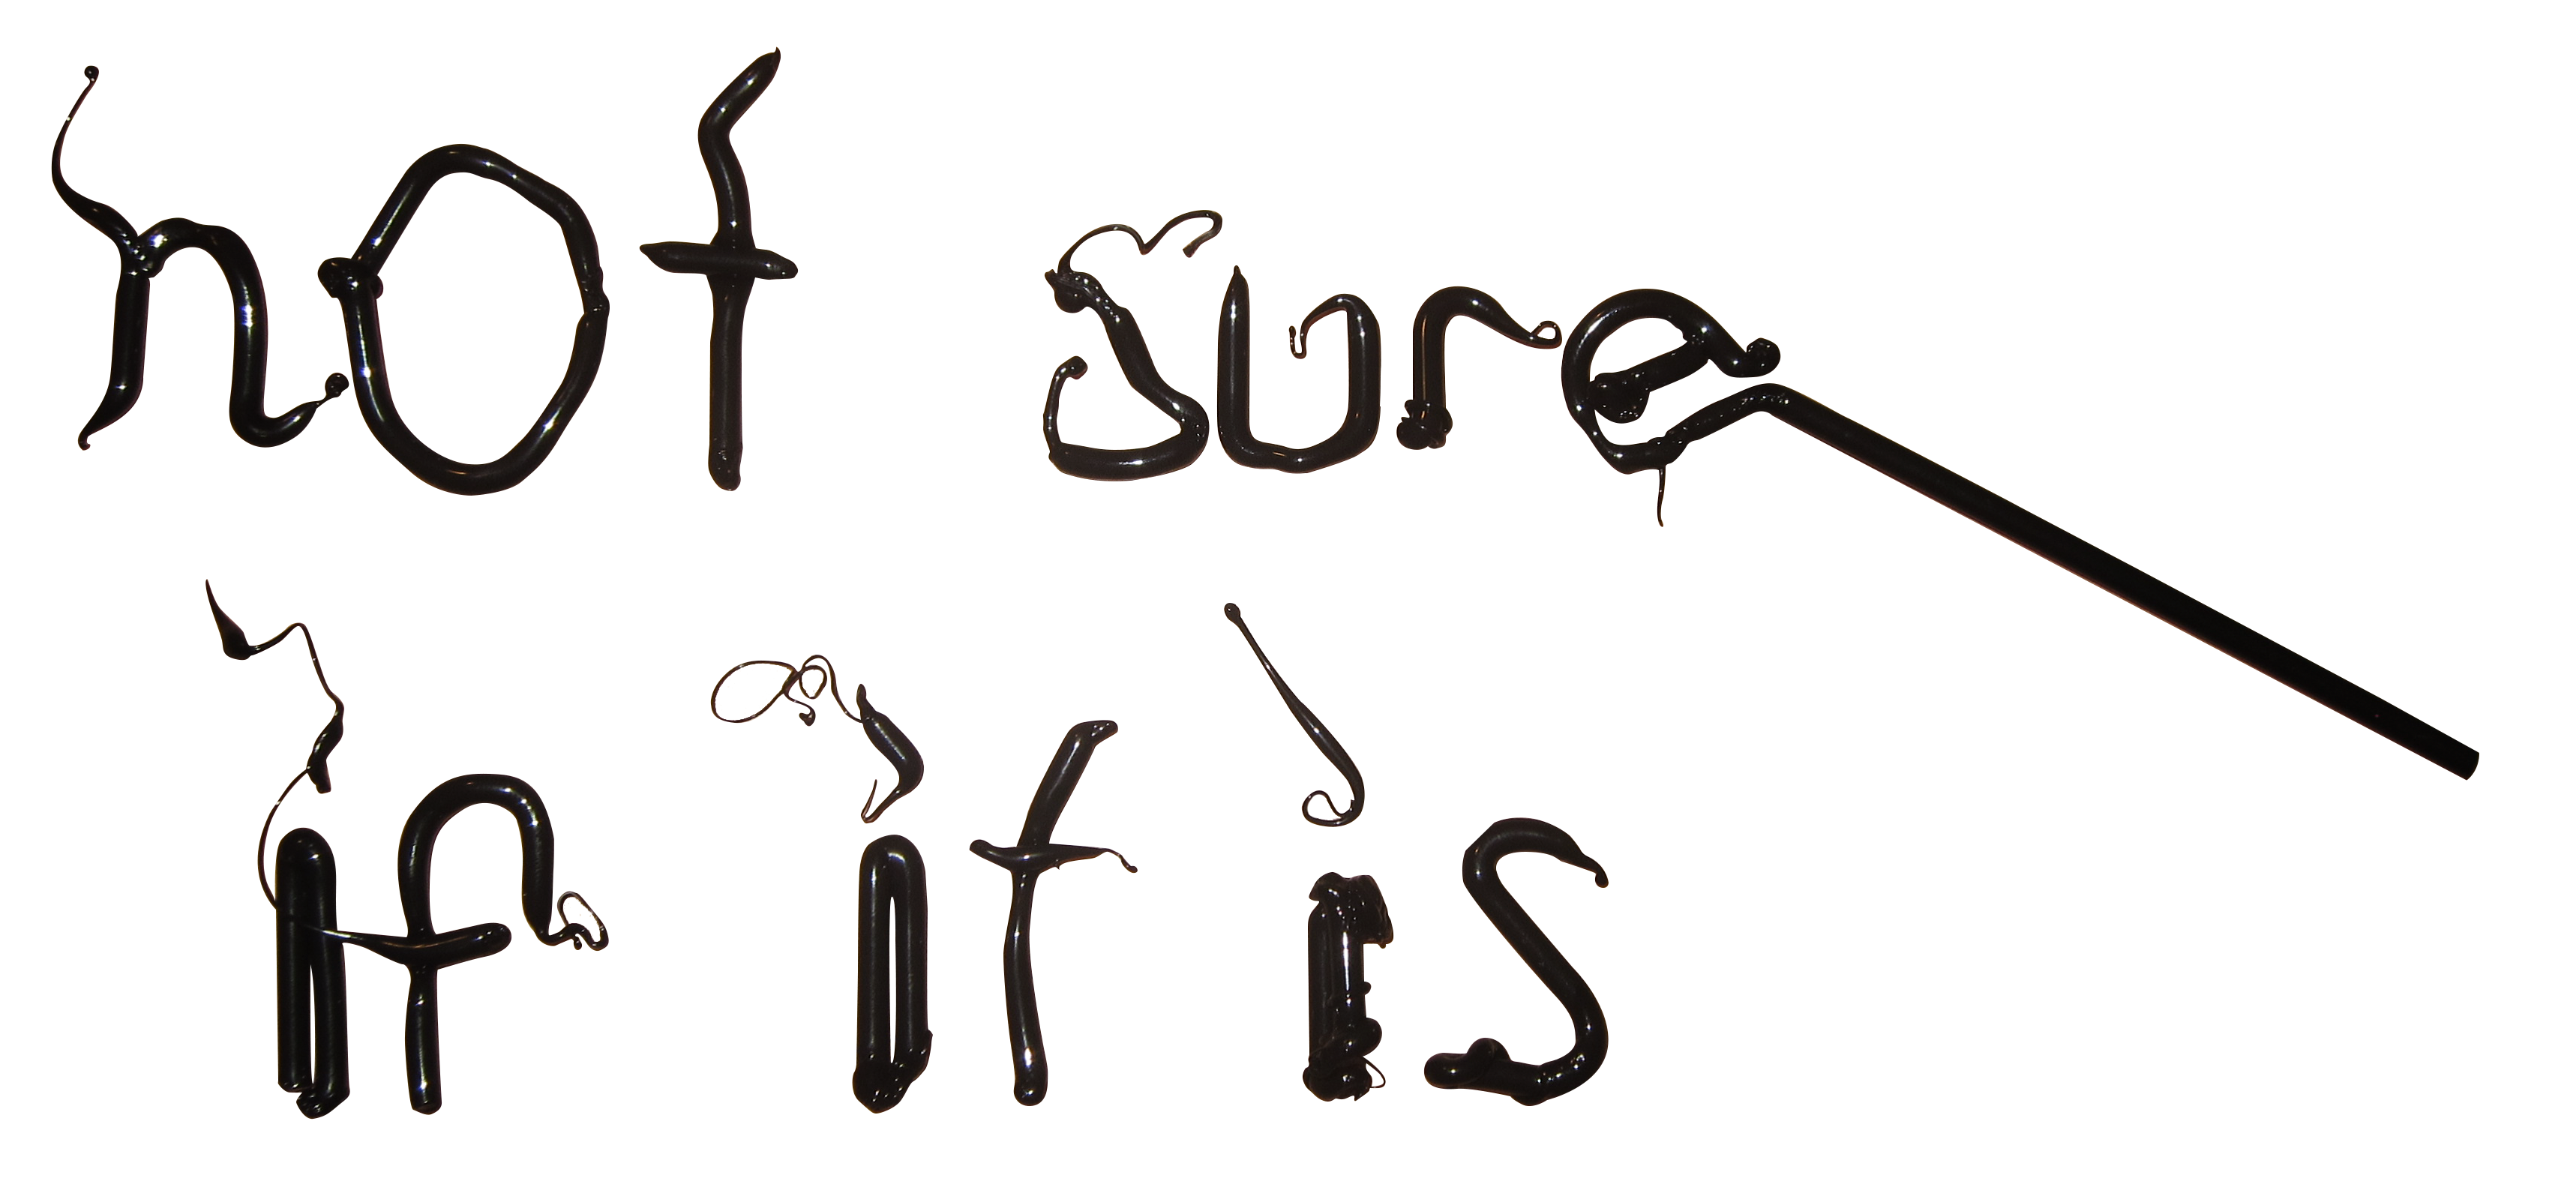 not sure
if it is